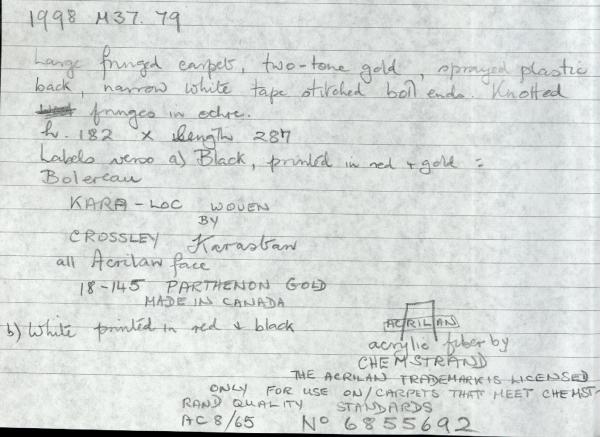 1998 M37. 79
Large fringed carpet, two-tone gold, sprayed plastic
back, narrow white tape stitched both ends. Knotted
fringes in ochre.
h. 182 x length 287
Labels verso a) Black, printed in red + gold =
Bolereau
KARA-LOC WOVEN
BY
CROSSLEY Karastan
all Acrilan face
18-145 PARTHENON GOLD
MADE IN CANADA
b) White printed in red & black
ACRILAN
acrylic fiber by
CHEMSTRAND
THE ACRILAN TRADEMARK IS LICENSED
ONLY FOR USE ON/CARPETS THAT MEET CHEMST-
RAND QUALITY STANDARDS
AC 8/65 No 6855692